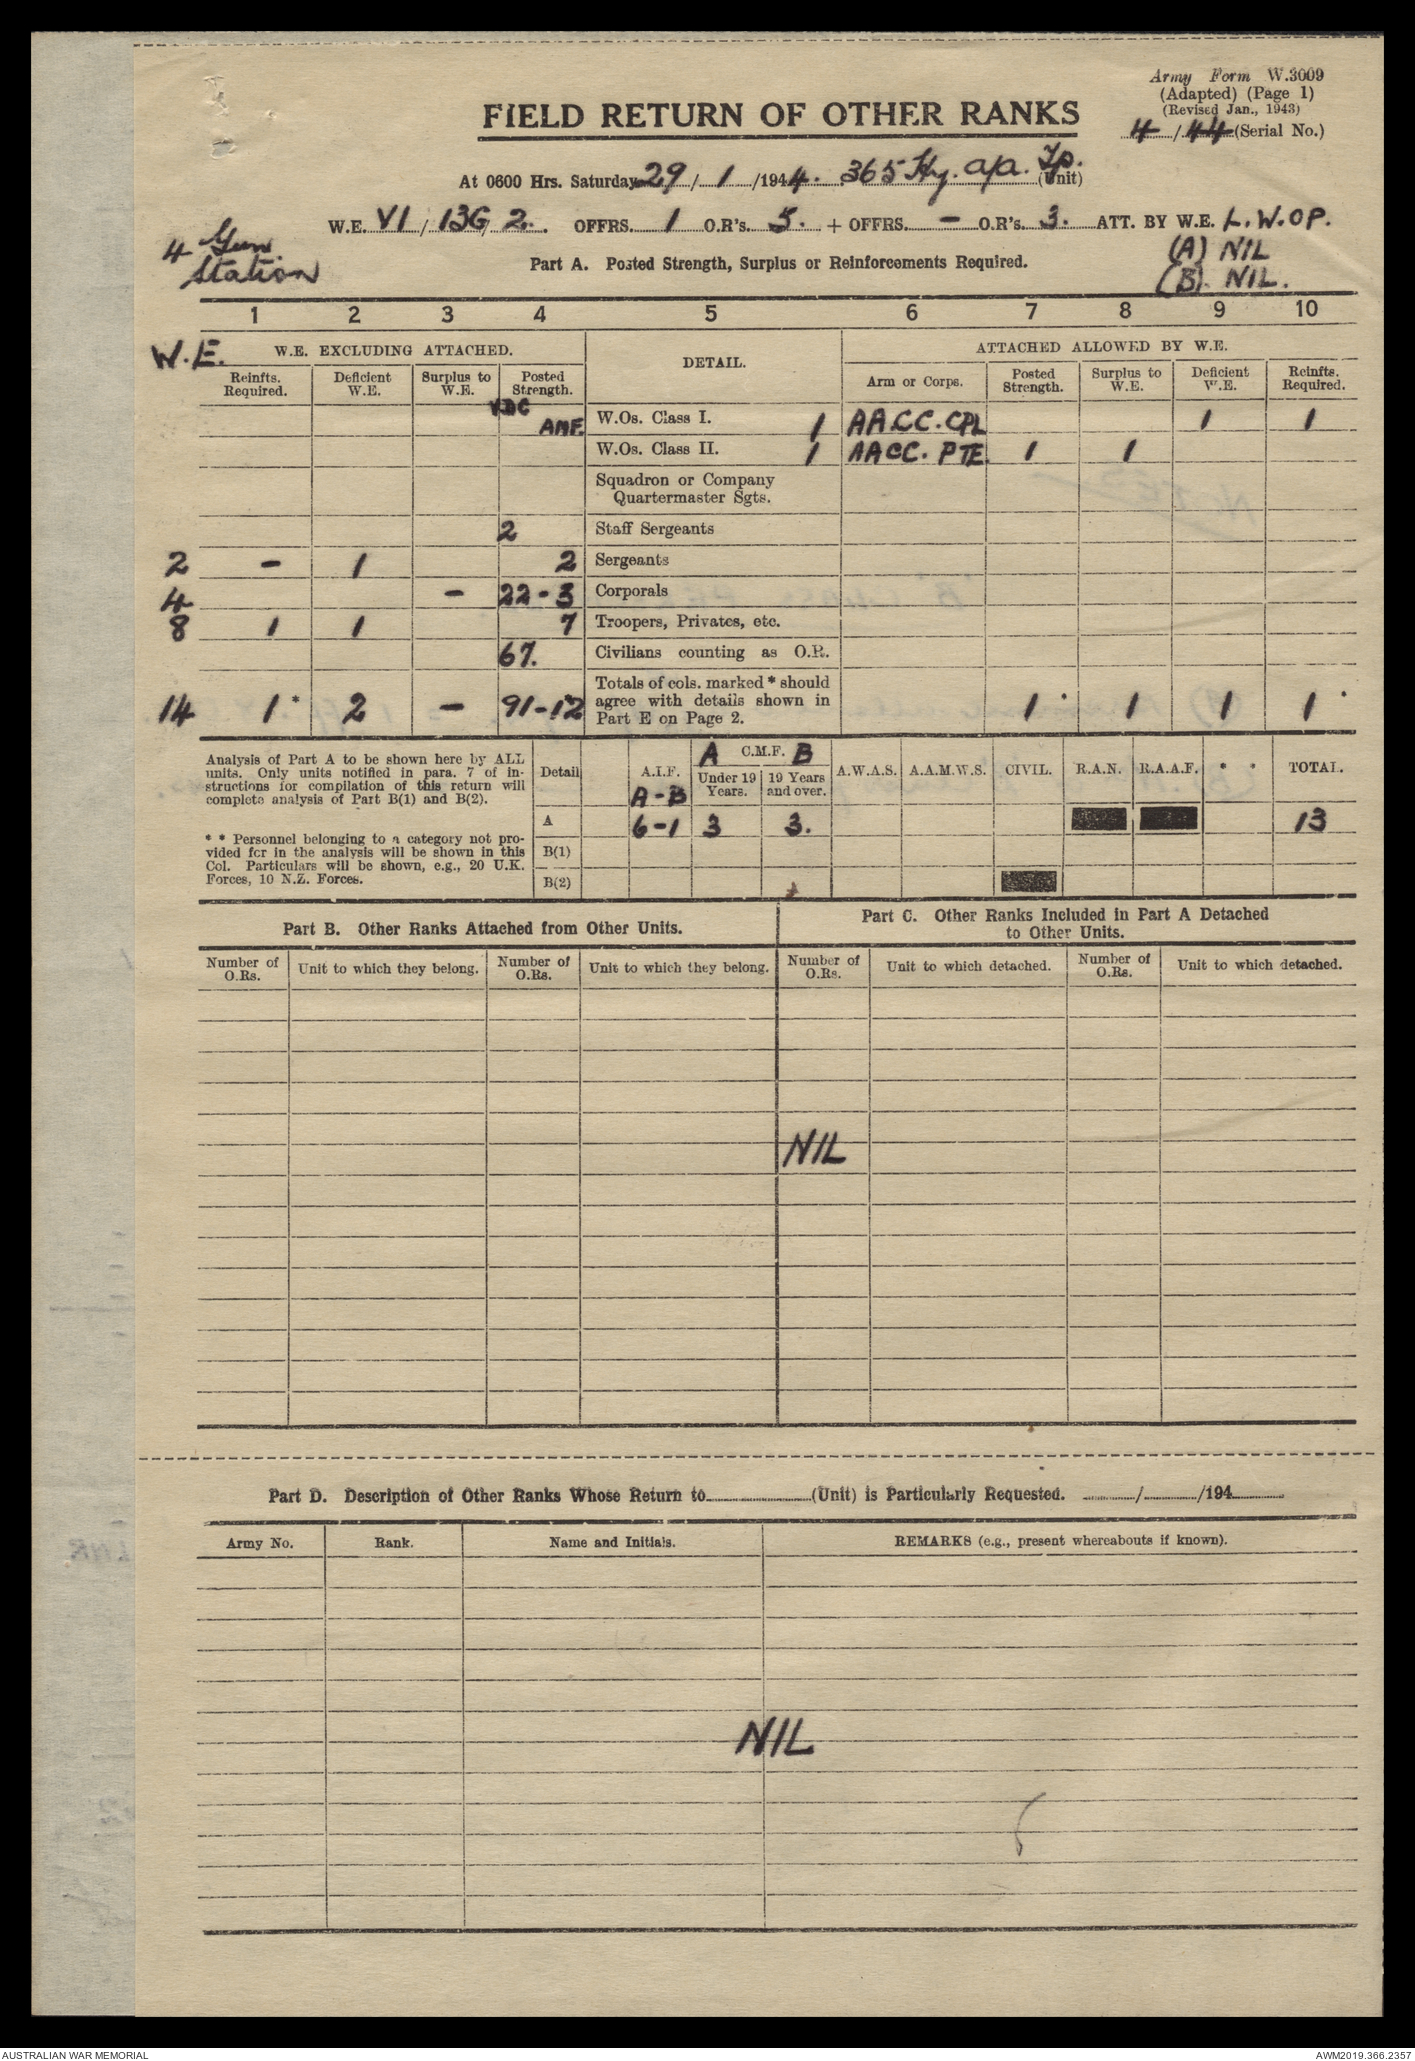 Army Form W.3009
(Adapted) (Page 1)
(Revised Jan., 1943)
4 / 44 (Serial No.)
FIELD RETURN OF OTHER RANKS
At 0600 Hrs. Saturday 29 / 1 /1944. 365 Hy. a/a. Tp. (Unit)
W.E. VI / 13G / 2. OFFRS. 1 O.R's. 5. + OFFRS. – O.R's. 3. ATT. BY W.E. L.W.OP.
(A) NIL
(B). NIL.
4 Gun
Station
Part A. Posted Strength, Surplus or Reinforcements Required.
1 2 3 4 5 6 7 8 9 10
W.E. W.E. EXCLUDING ATTACHED. DETAIL. ATTACHED ALLOWED BY W.E.
Reinfts. Required. Deficient W.E. Surplus to W.E. Posted Strength. Arm or Corps. Posted Strength. Surplus to W.E. Deficient W.E. Reinfts. Required.
VDC AMF. W.Os. Class I. 1 AACC. CPL 1 1
W.Os. Class II. 1 AACC. PTE. 1 1
Squadron or Company
Quartermaster Sgts.
2 Staff Sergeants
2 – 1 2 Sergeants
4 – 22 - 3 Corporals
8 1 1 7 Troopers, Privates, etc.
67. Civilians counting as O.R.
14 1 * 2 – 91 - 12 Totals of cols. marked * should agree with details shown in Part E on Page 2. 1 * 1 1 1 *
Analysis of Part A to be shown here by ALL
units. Only units notified in para. 7 of in-
structions for compilation of this return will
complete analysis of Part B(1) and B(2).
* * Personnel belonging to a category not pro-
vided for in the analysis will be shown in this
Col. Particulars will be shown, e.g., 20 U.K.
Forces, 10 N.Z. Forces.
Detail A.I.F. A C.M.F. B A.W.A.S. A.A.M.W.S. CIVIL. R.A.N. R.A.A.F. * * TOTAL.
A-B Under 19 Years. 19 Years and over.
A 6-1 3 3. 13
B(1)
B(2)
Part B. Other Ranks Attached from Other Units.
Part C. Other Ranks Included in Part A Detached
to Other Units.
Number of O.Rs. Unit to which they belong. Number of O.Rs. Unit to which they belong. Number of O.Rs. Unit to which detached. Number of O.Rs. Unit to which detached.
NIL
Part D. Description of Other Ranks Whose Return to (Unit) is Particularly Requested. / /194
Army No. Rank. Name and Initials. REMARKS (e.g., present whereabouts if known).
NIL
AUSTRALIAN WAR MEMORIAL AWM2019.366.2357